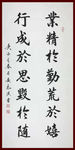 業精于勤荒於嬉
行成於思毀於随